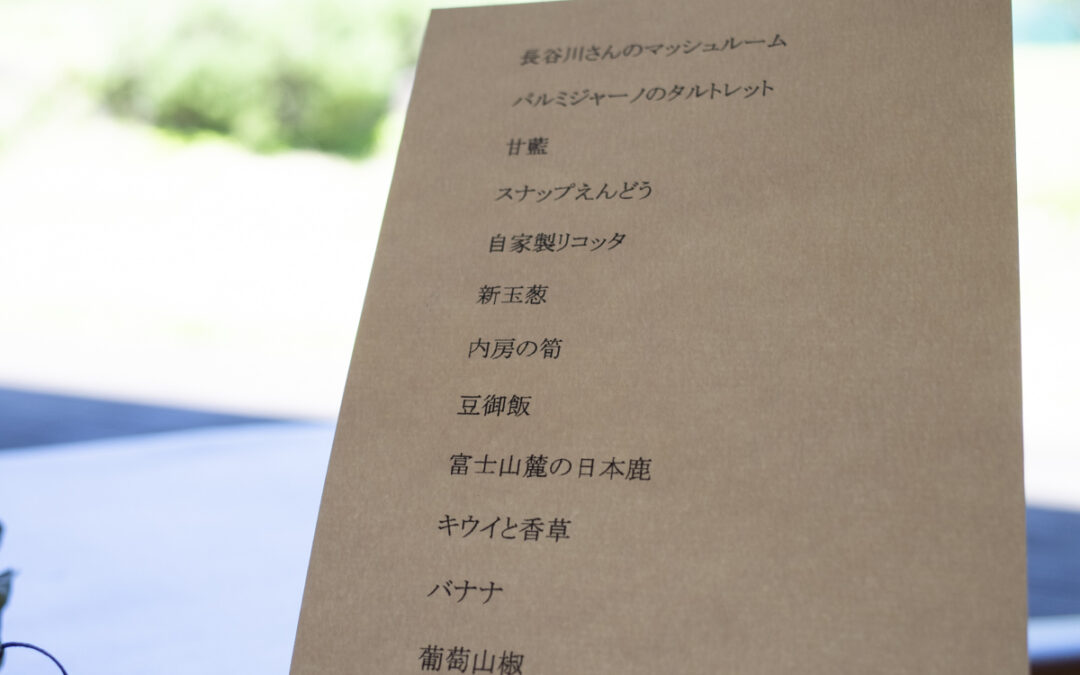 長谷川さんのマッシュルーム
パルミジャーノのタルトレット
甘藍
スナップえんどう
自家製リコッタ
新玉葱
内房の筍
豆御飯
富士山麓の日本鹿
キウイと香草
バナナ
葡萄山椒